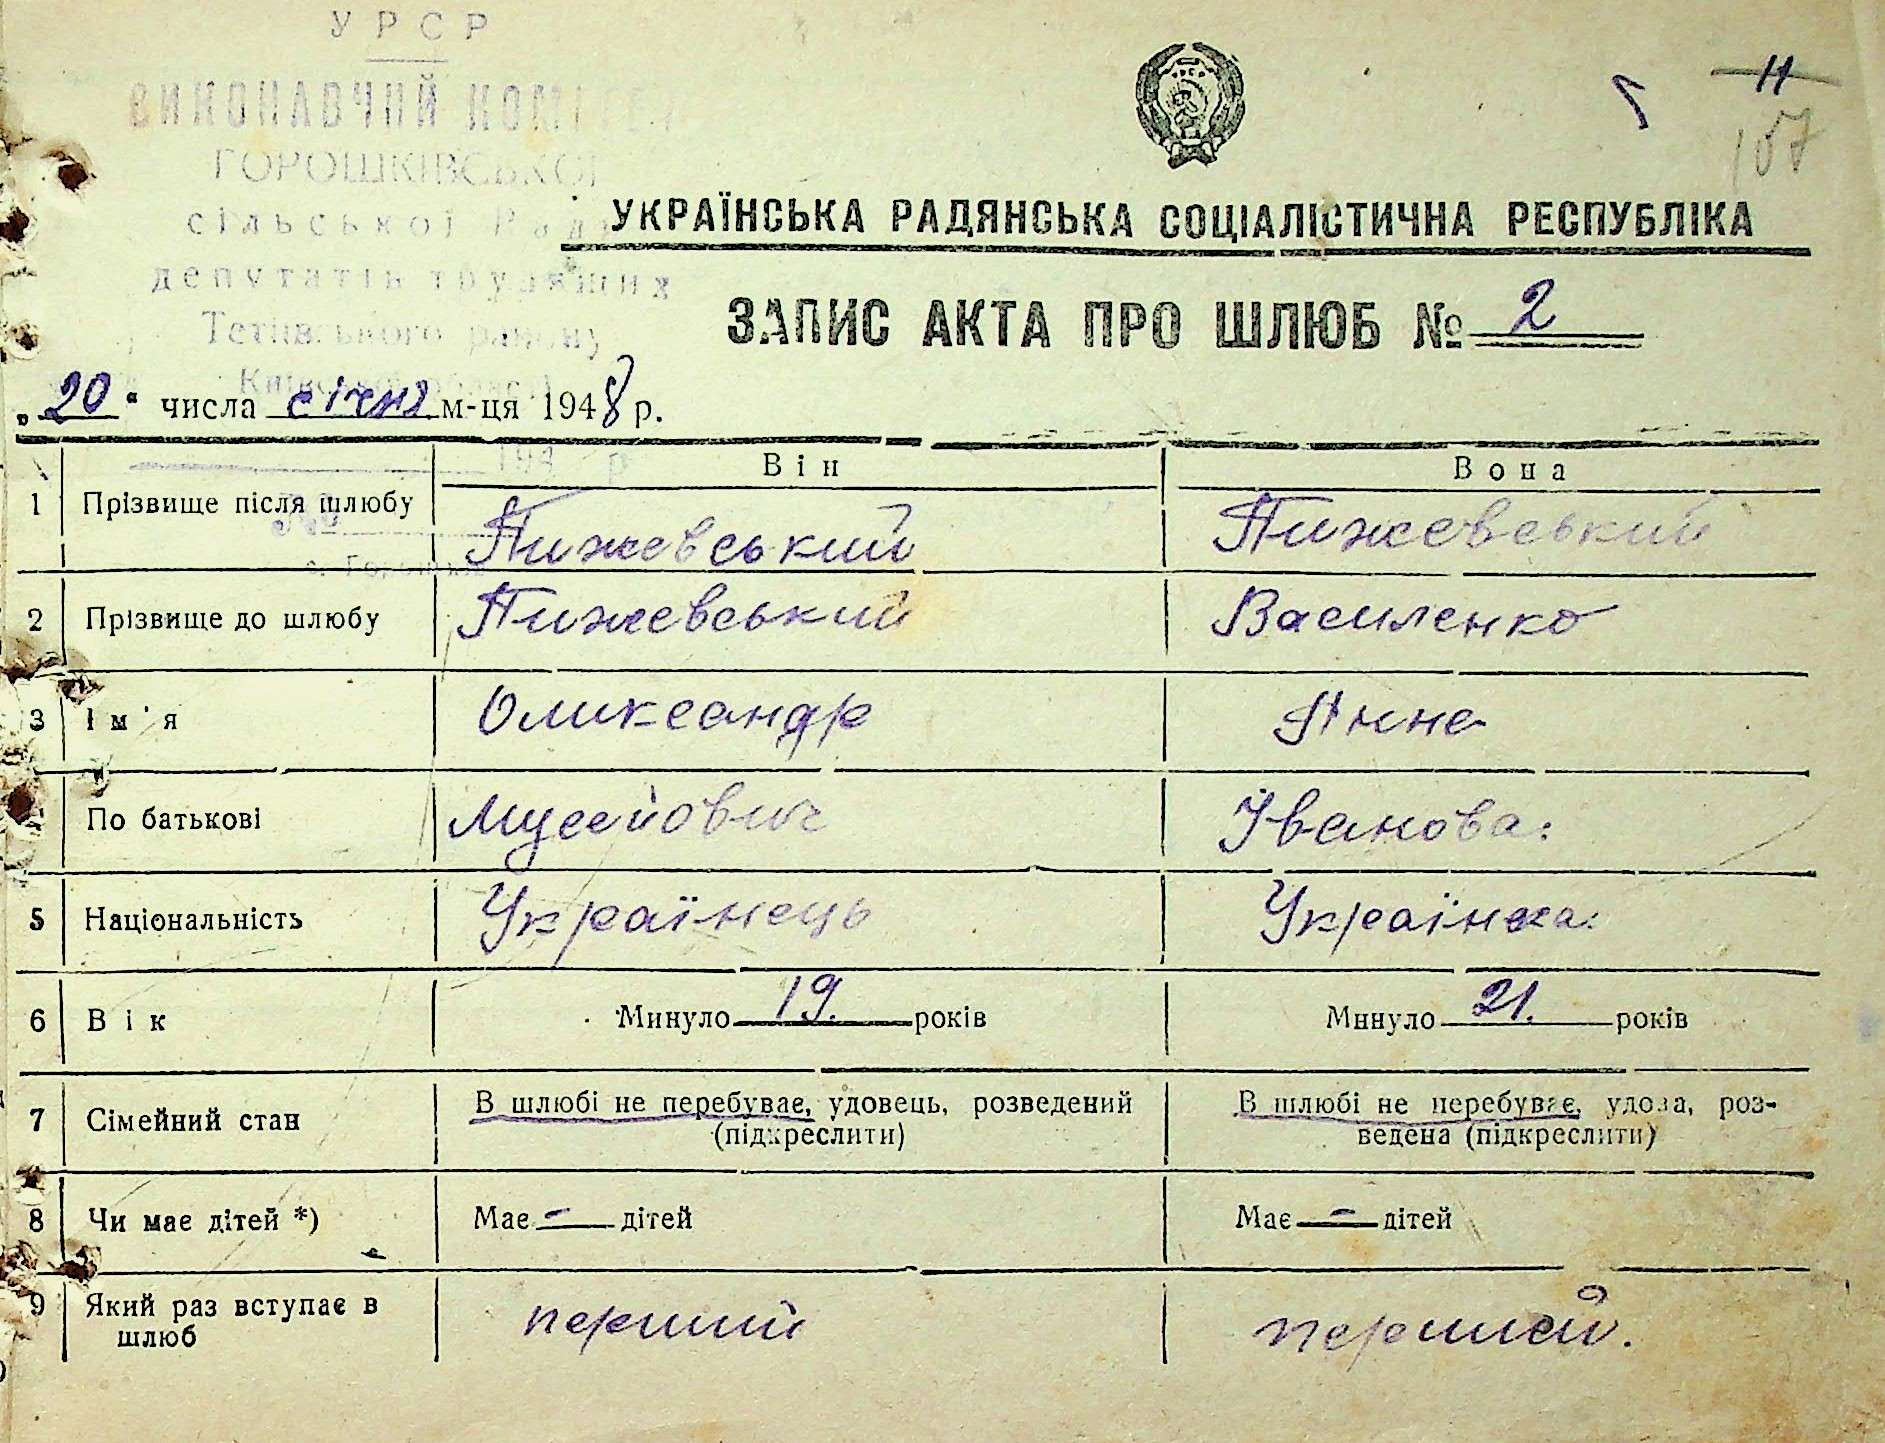 УРСР
ВИКОНАВЧИЙ КОМІТЕТ
ГОРОШКІВСЬКОЇ
сільської Ради
депутатів трудящих
Тетіївського району
Київської області
11
107
УКРАЇНСЬКА РАДЯНСЬКА СОЦІАЛІСТИЧНА РЕСПУБЛІКА
ЗАПИС АКТА ПРО ШЛЮБ № 2
„20“ числа січня м-ця 1948 р.
194 р
Він Вона
1 Прізвище після шлюбу Пижевський Пижевський
№
2 Прізвище до шлюбу Пижевський Василенко
3 Ім'я Олександр Анна
4 По батькові Мусійович Іванова.
5 Національність Українець Українка.
6 Вік Минуло 19. років Минуло 21. років
7 Сімейний стан В шлюбі не перебуває, удовець, розведений (підкреслити) В шлюбі не перебуває, удова, роз-
ведена (підкреслити)
8 Чи має дітей *) Має – дітей Має – дітей
9 Який раз вступає в перший перший.
шлюб